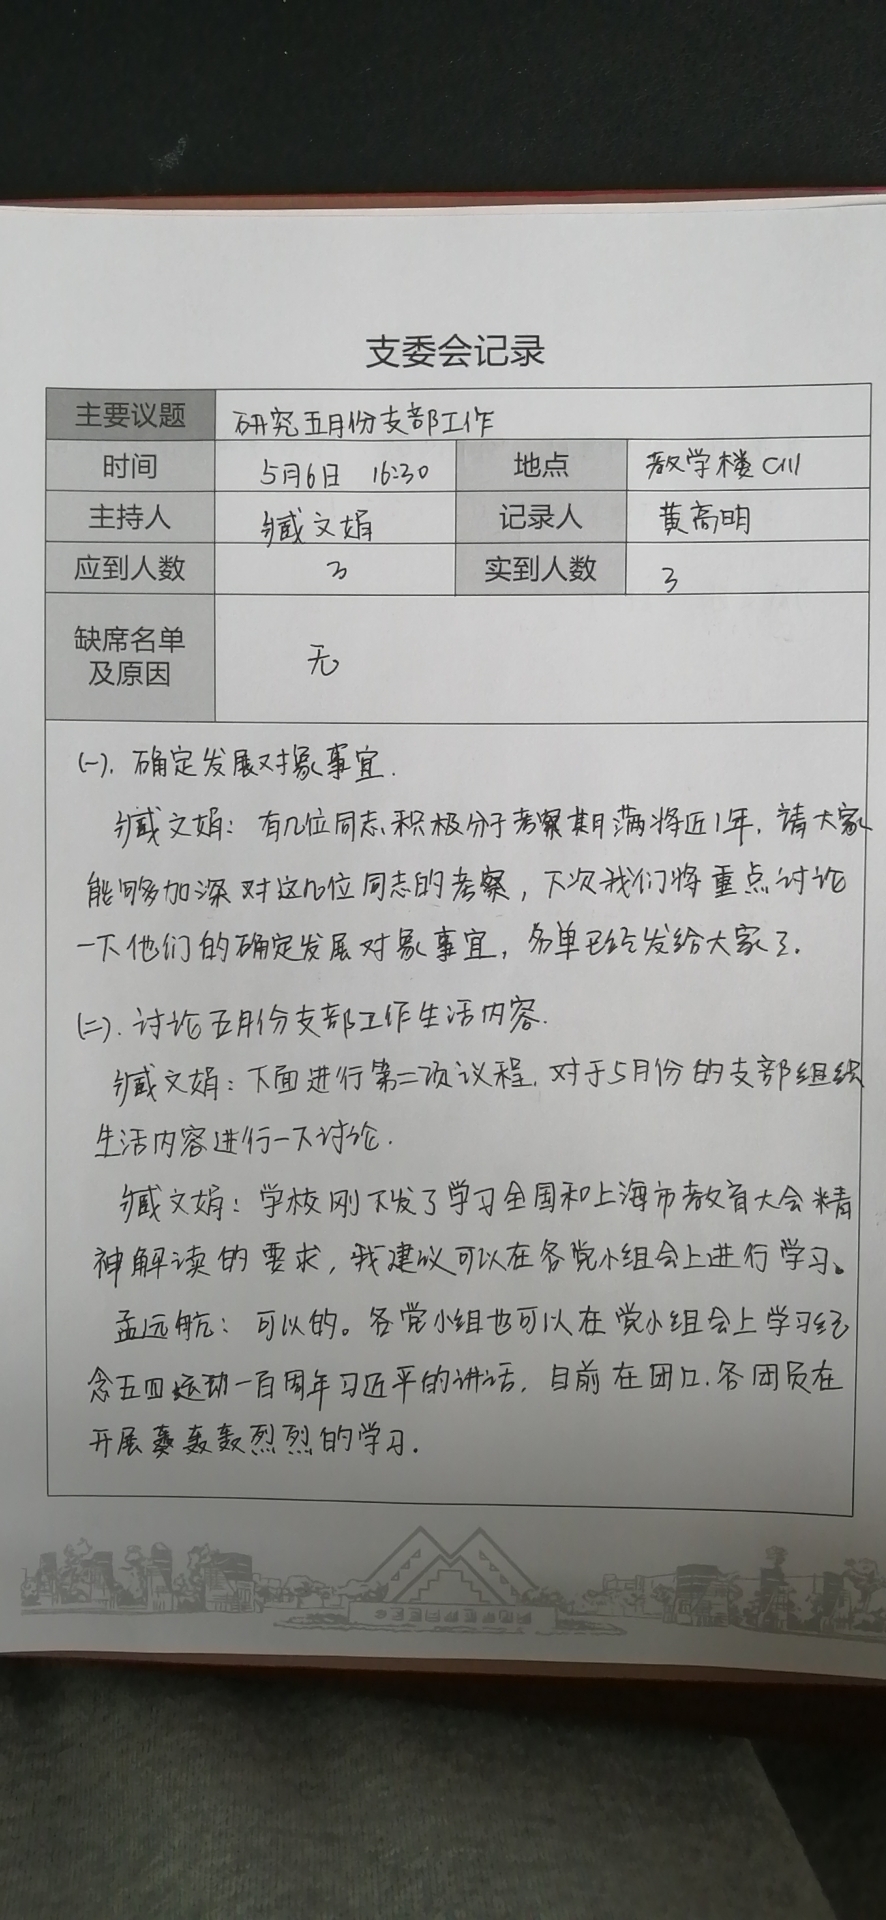 支委会记录
主要议题 研究五月份支部工作
时间 5月6日 16:30 地点 教学楼C111
主持人 臧文娟 记录人 黄高明
应到人数 3 实到人数 3
缺席名单
及原因 无
(一). 确定发展对象事宜.
臧文娟: 有几位同志积极分子考察期满将近1年, 请大家
能够加深对这几位同志的考察, 下次我们将重点讨论
一下他们的确定发展对象事宜, 名单已经发给大家了.
(二). 讨论五月份支部工作生活内容.
臧文娟: 下面进行第二项议程, 对于5月份的支部组织
生活内容进行一下讨论.
臧文娟: 学校刚下发了学习全国和上海市教育大会精
神解读的要求, 我建议可以在各党小组会上进行学习。
孟远航: 可以的。各党小组也可以在党小组会上学习纪
念五四运动一百周年习近平的讲话, 目前在团口, 各团员在
开展轰轰烈烈的学习.